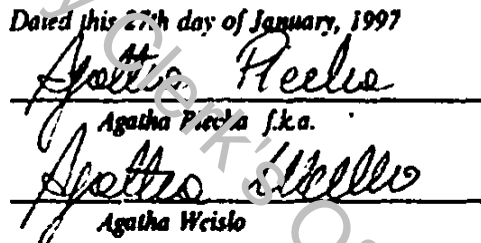 Dated this 27th day of January, 1997
Agatha Piecha
Agatha Piecha f.k.a.
Agatha
Agatha Weislo
Clerk's